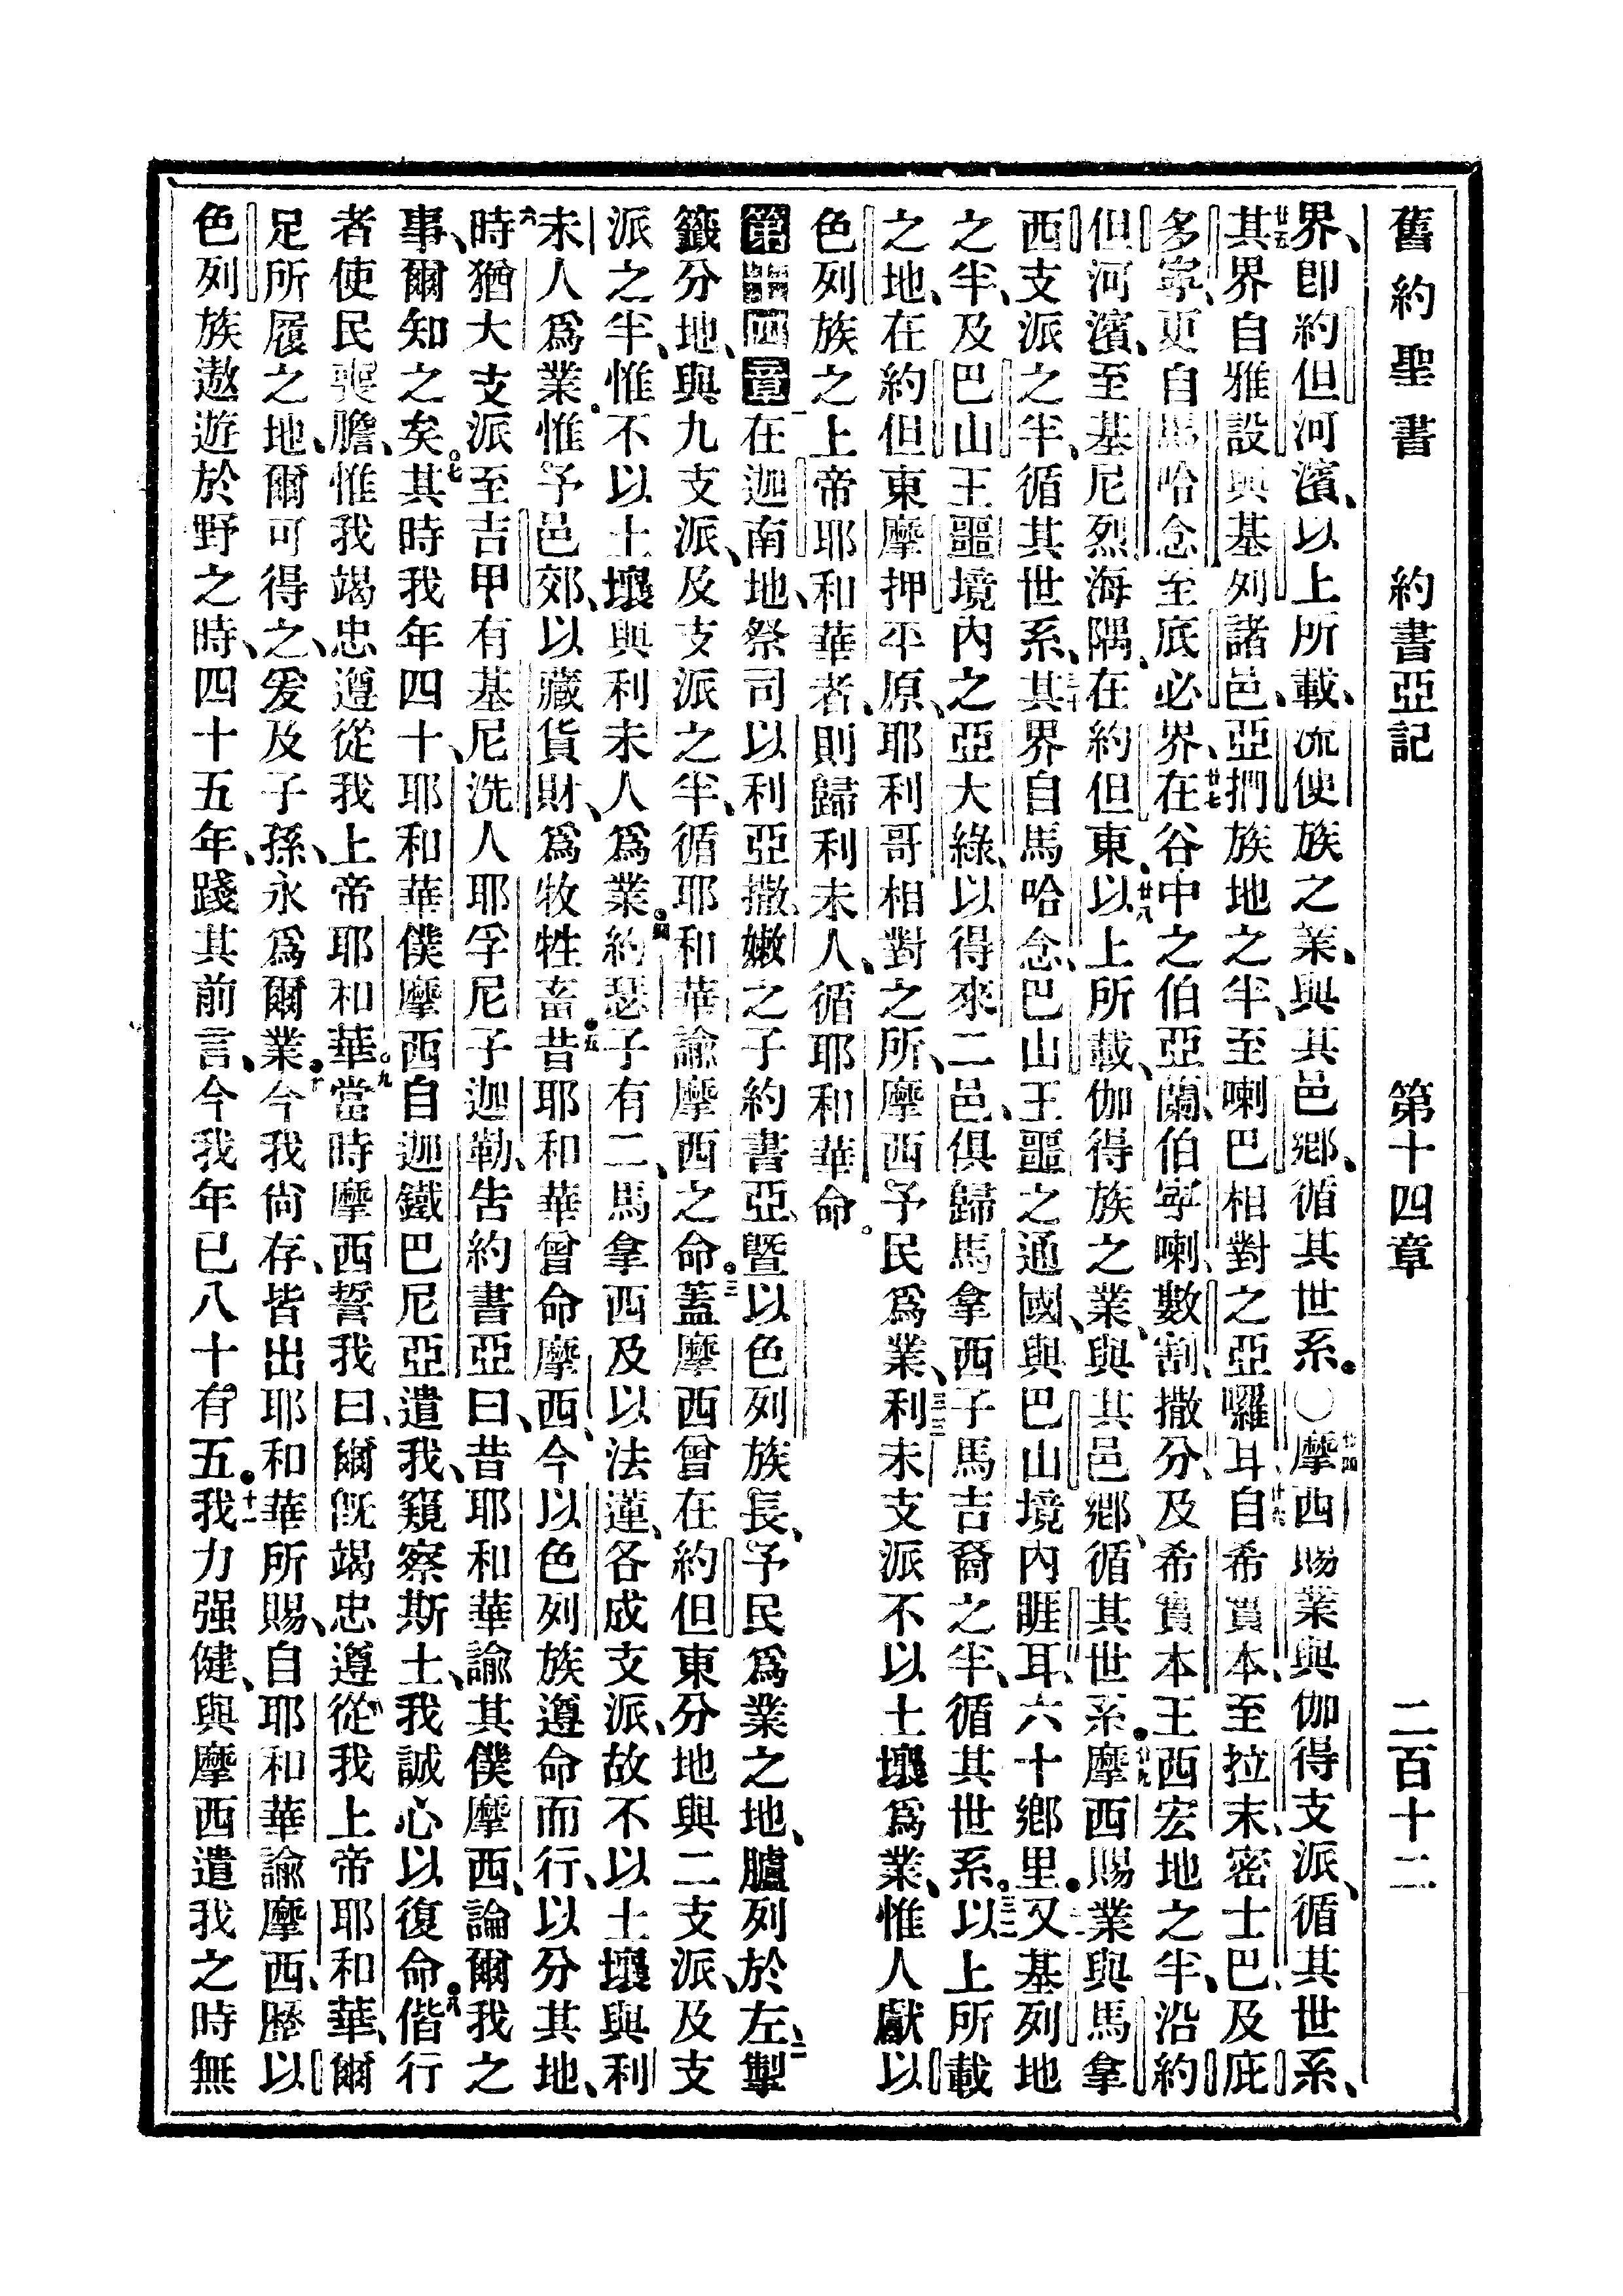 舊約聖書 約書亞記 第十四章 二百十二
界、卽約但河濱、以上所載、流便族之業、與其邑鄉、循其世系。○廿四摩西賜業與伽得支派、循其世系、
廿五其界自雅設與基列諸邑、亞捫族地之半、至喇巴相對之亞囉耳、廿六自希實本、至拉末密士巴、及庇
多寧、更自馬哈念至底必界、廿七在谷中之伯亞蘭、伯寧喇、數割、撒分、及希實本王西宏地之半、沿約
但河濱、至基尼烈海隅、在約但東、廿八以上所載、伽得族之業、與其邑鄉、循其世系。廿九摩西賜業與馬拿
西支派之半、循其世系、三十其界自馬哈念、巴山王噩之通國、與巴山境內睚耳、六十鄉里。又基列地
之半、及巴山王噩境內之亞大綠、以得來二邑、俱歸馬拿西子馬吉裔之半、循其世系。三二以上所載
之地、在約但東摩押平原、耶利哥相對之所、摩西予民爲業、三三利未支派不以土壤爲業、惟人獻以
色列族之上帝耶和華者、則歸利未人、循耶和華命。
第十四章 一在迦南地、祭司以利亞撒、嫩之子約書亞、曁以色列族長、予民爲業之地、臚列於左、二掣
籤分地、與九支派、及支派之半、循耶和華諭摩西之命。三蓋摩西曾在約但東分地與二支派、及支
派之半、惟不以土壤與利未人爲業。四約瑟子有二、馬拿西及以法蓮、各成支派、故不以土壤與利
未人爲業。惟予邑郊、以藏貨財、爲牧牲畜。五昔耶和華曾命摩西、今以色列族遵命而行、以分其地、
六時猶大支派至吉甲、有基尼洗人耶孚尼子迦勒、告約書亞曰、昔耶和華諭其僕摩西、論爾我之
事、爾知之矣。七其時我年四十、耶和華僕摩西自迦鐵巴尼亞遣我、窺察斯土、我誠心以復命。八偕行
者使民喪膽、惟我竭忠遵從我上帝耶和華。九當時摩西誓我曰、爾旣竭忠遵從我上帝耶和華、爾
足所履之地、爾可得之、爰及子孫、永爲爾業。十今我尙存、皆出耶和華所賜、自耶和華諭摩西、歷以
色列族遨遊於野之時、四十五年、踐其前言、今我年已八十有五。十一我力强健、與摩西遣我之時無